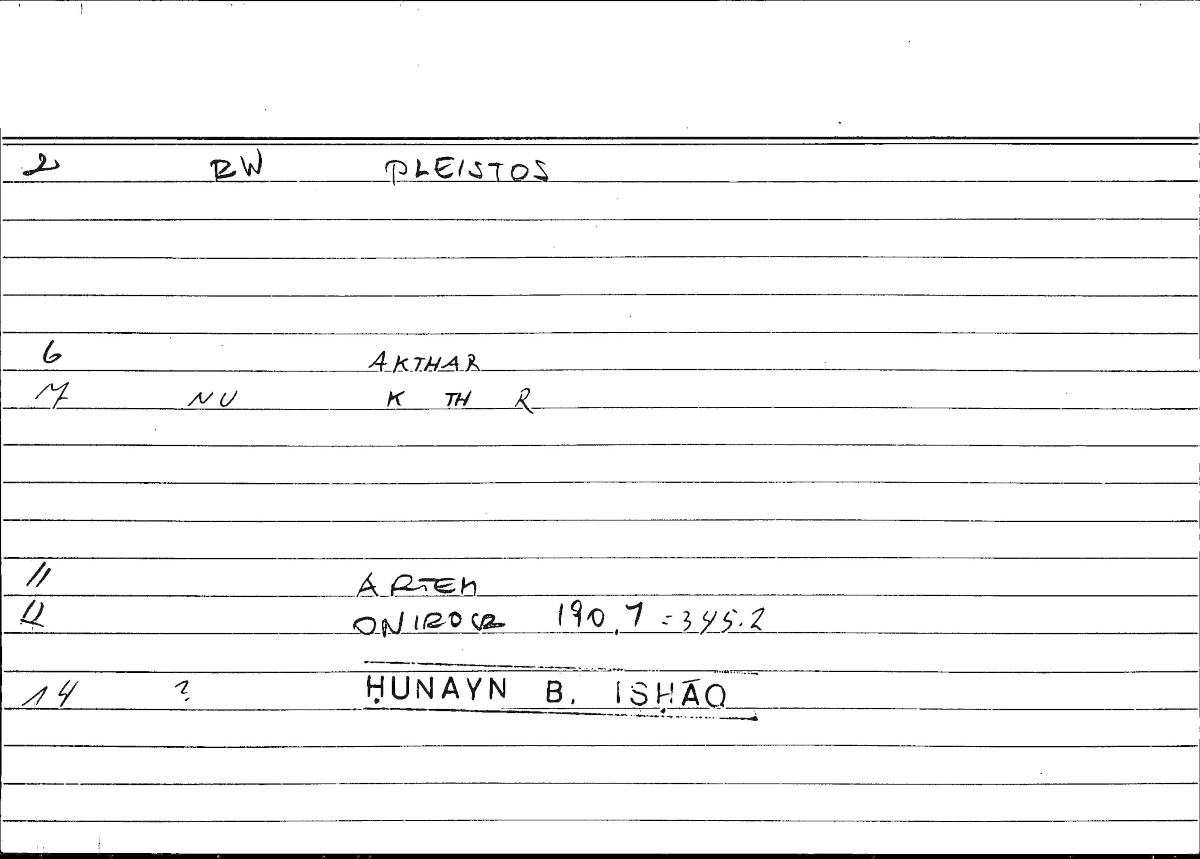 2 RW PLEISTOS
6 AKTHAR
7 NU K TH R
11 ARTEM
12 ONIROCR 190,7 = 345.2
14 ? ḤUNAYN B. ISḤĀQ